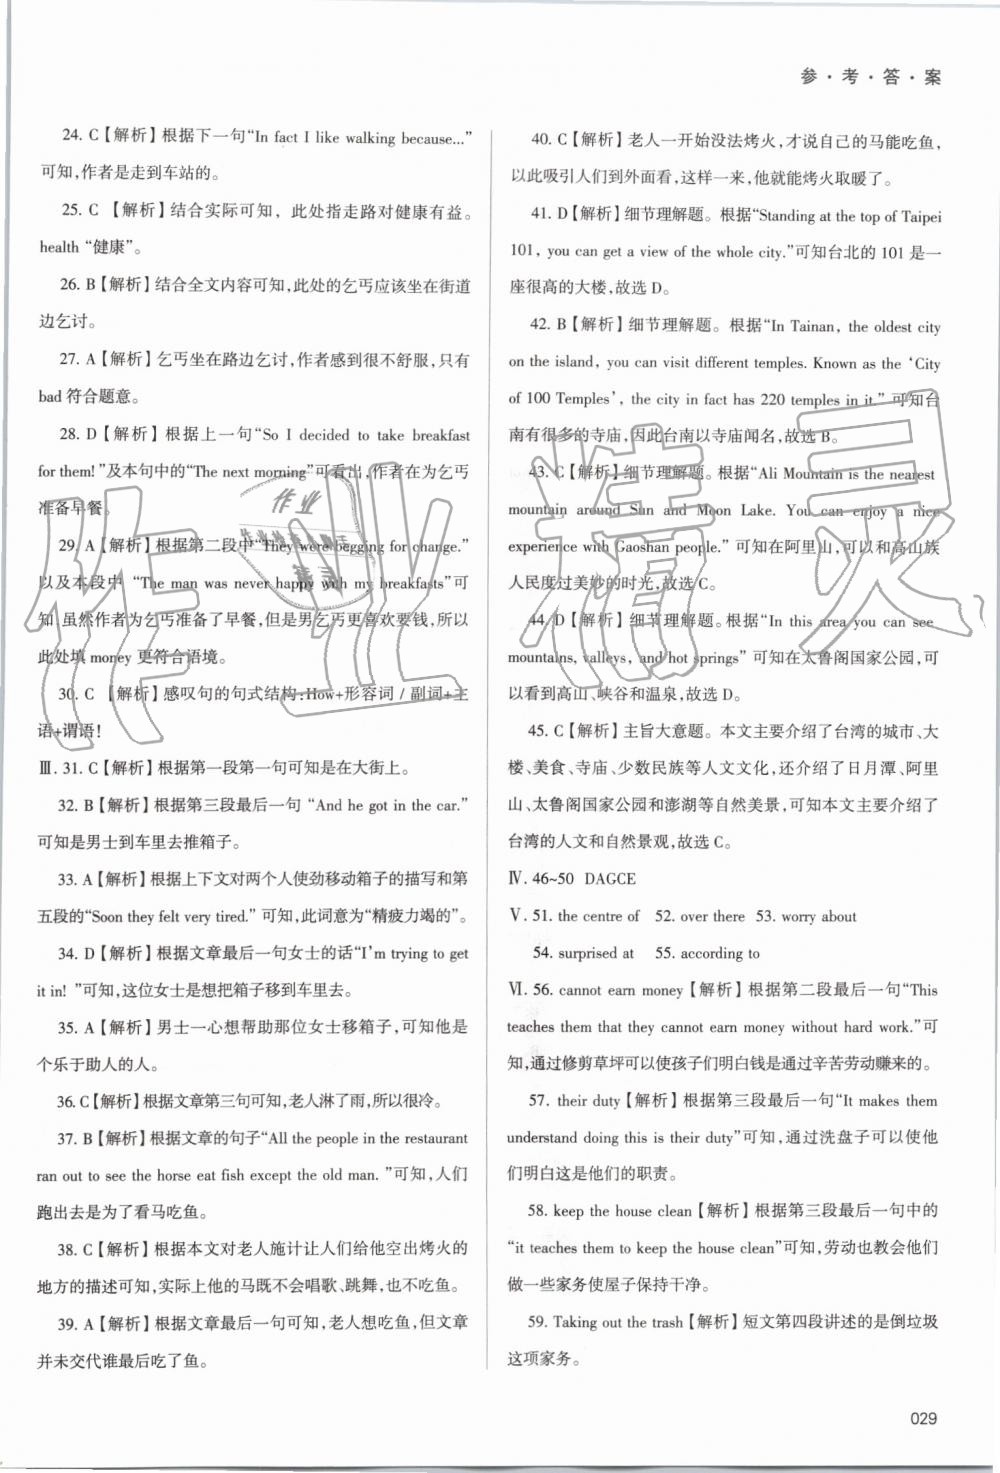 参·考·答·案
24. C【解析】根据下一句“In fact I like walking because...”
可知,作者是走到车站的。
25. C 【解析】结合实际可知，此处指走路对健康有益。
health “健康”。
26. B【解析】结合全文内容可知,此处的乞丐应该坐在街道
边乞讨。
27. A【解析】乞丐坐在路边乞讨,作者感到很不舒服,只有
bad 符合题意。
28. D【解析】根据上一句“So I decided to take breakfast
for them!”及本句中的“The next morning”可看出,作者在为乞丐
准备早餐。
29. A【解析】根据第二段中“They were begging for change.”
以及本段中 “The man was never happy with my breakfasts”可
知,虽然作者为乞丐准备了早餐,但是男乞丐更喜欢要钱,所以
此处填 money 更符合语境。
30. C 【解析】感叹句的句式结构:How+形容词 / 副词+主
语+谓语!
Ⅲ. 31. C【解析】根据第一段第一句可知是在大街上。
32. B【解析】根据第三段最后一句 “And he got in the car.”
可知是男士到车里去推箱子。
33. A【解析】根据上下文对两个人使劲移动箱子的描写和第
五段的“Soon they felt very tired.” 可知,此词意为“精疲力竭的”。
34. D【解析】根据文章最后一句女士的话“I’m trying to get
it in! ”可知,这位女士是想把箱子移到车里去。
35. A【解析】男士一心想帮助那位女士移箱子,可知他是
个乐于助人的人。
36. C【解析】根据文章第三句可知,老人淋了雨,所以很冷。
37. B【解析】根据文章的句子“All the people in the restaurant
ran out to see the horse eat fish except the old man. ”可知,人们
跑出去是为了看马吃鱼。
38. C【解析】根据本文对老人施计让人们给他空出烤火的
地方的描述可知,实际上他的马既不会唱歌、跳舞,也不吃鱼。
39. A【解析】根据文章最后一句可知,老人想吃鱼,但文章
并未交代谁最后吃了鱼。
40. C【解析】老人一开始没法烤火,才说自己的马能吃鱼,
以此吸引人们到外面看,这样一来,他就能烤火取暖了。
41. D【解析】细节理解题。根据“Standing at the top of Taipei
101, you can get a view of the whole city.”可知台北的 101 是一
座很高的大楼,故选 D。
42. B【解析】细节理解题。根据“In Tainan, the oldest city
on the island, you can visit different temples. Known as the ‘City
of 100 Temples’, the city in fact has 220 temples in it.” 可知台
南有很多的寺庙,因此台南以寺庙闻名,故选 B。
43. C【解析】细节理解题。根据“Ali Mountain is the nearest
mountain around Sun and Moon Lake. You can enjoy a nice
experience with Gaoshan people.” 可知在阿里山,可以和高山族
人民度过美妙的时光,故选 C。
44. D【解析】细节理解题。根据“In this area you can see
mountains, valleys, and hot springs” 可知在太鲁阁国家公园,可
以看到高山、峡谷和温泉,故选 D。
45. C【解析】主旨大意题。本文主要介绍了台湾的城市、大
楼、美食、寺庙、少数民族等人文文化,还介绍了日月潭、阿里
山、太鲁阁国家公园和澎湖等自然美景,可知本文主要介绍了
台湾的人文和自然景观,故选 C。
Ⅳ. 46~50 DAGCE
Ⅴ. 51. the centre of 52. over there 53. worry about
54. surprised at 55. according to
Ⅵ. 56. cannot earn money【解析】根据第二段最后一句“This
teaches them that they cannot earn money without hard work.”可
知,通过修剪草坪可以使孩子们明白钱是通过辛苦劳动赚来的。
57. their duty【解析】根据第三段最后一句“It makes them
understand doing this is their duty”可知,通过洗盘子可以使他
们明白这是他们的职责。
58. keep the house clean【解析】根据第三段最后一句中的
“it teaches them to keep the house clean”可知,劳动也教会他们
做一些家务使屋子保持干净。
59. Taking out the trash【解析】短文第四段讲述的是倒垃圾
这项家务。
029
作业精灵
作业